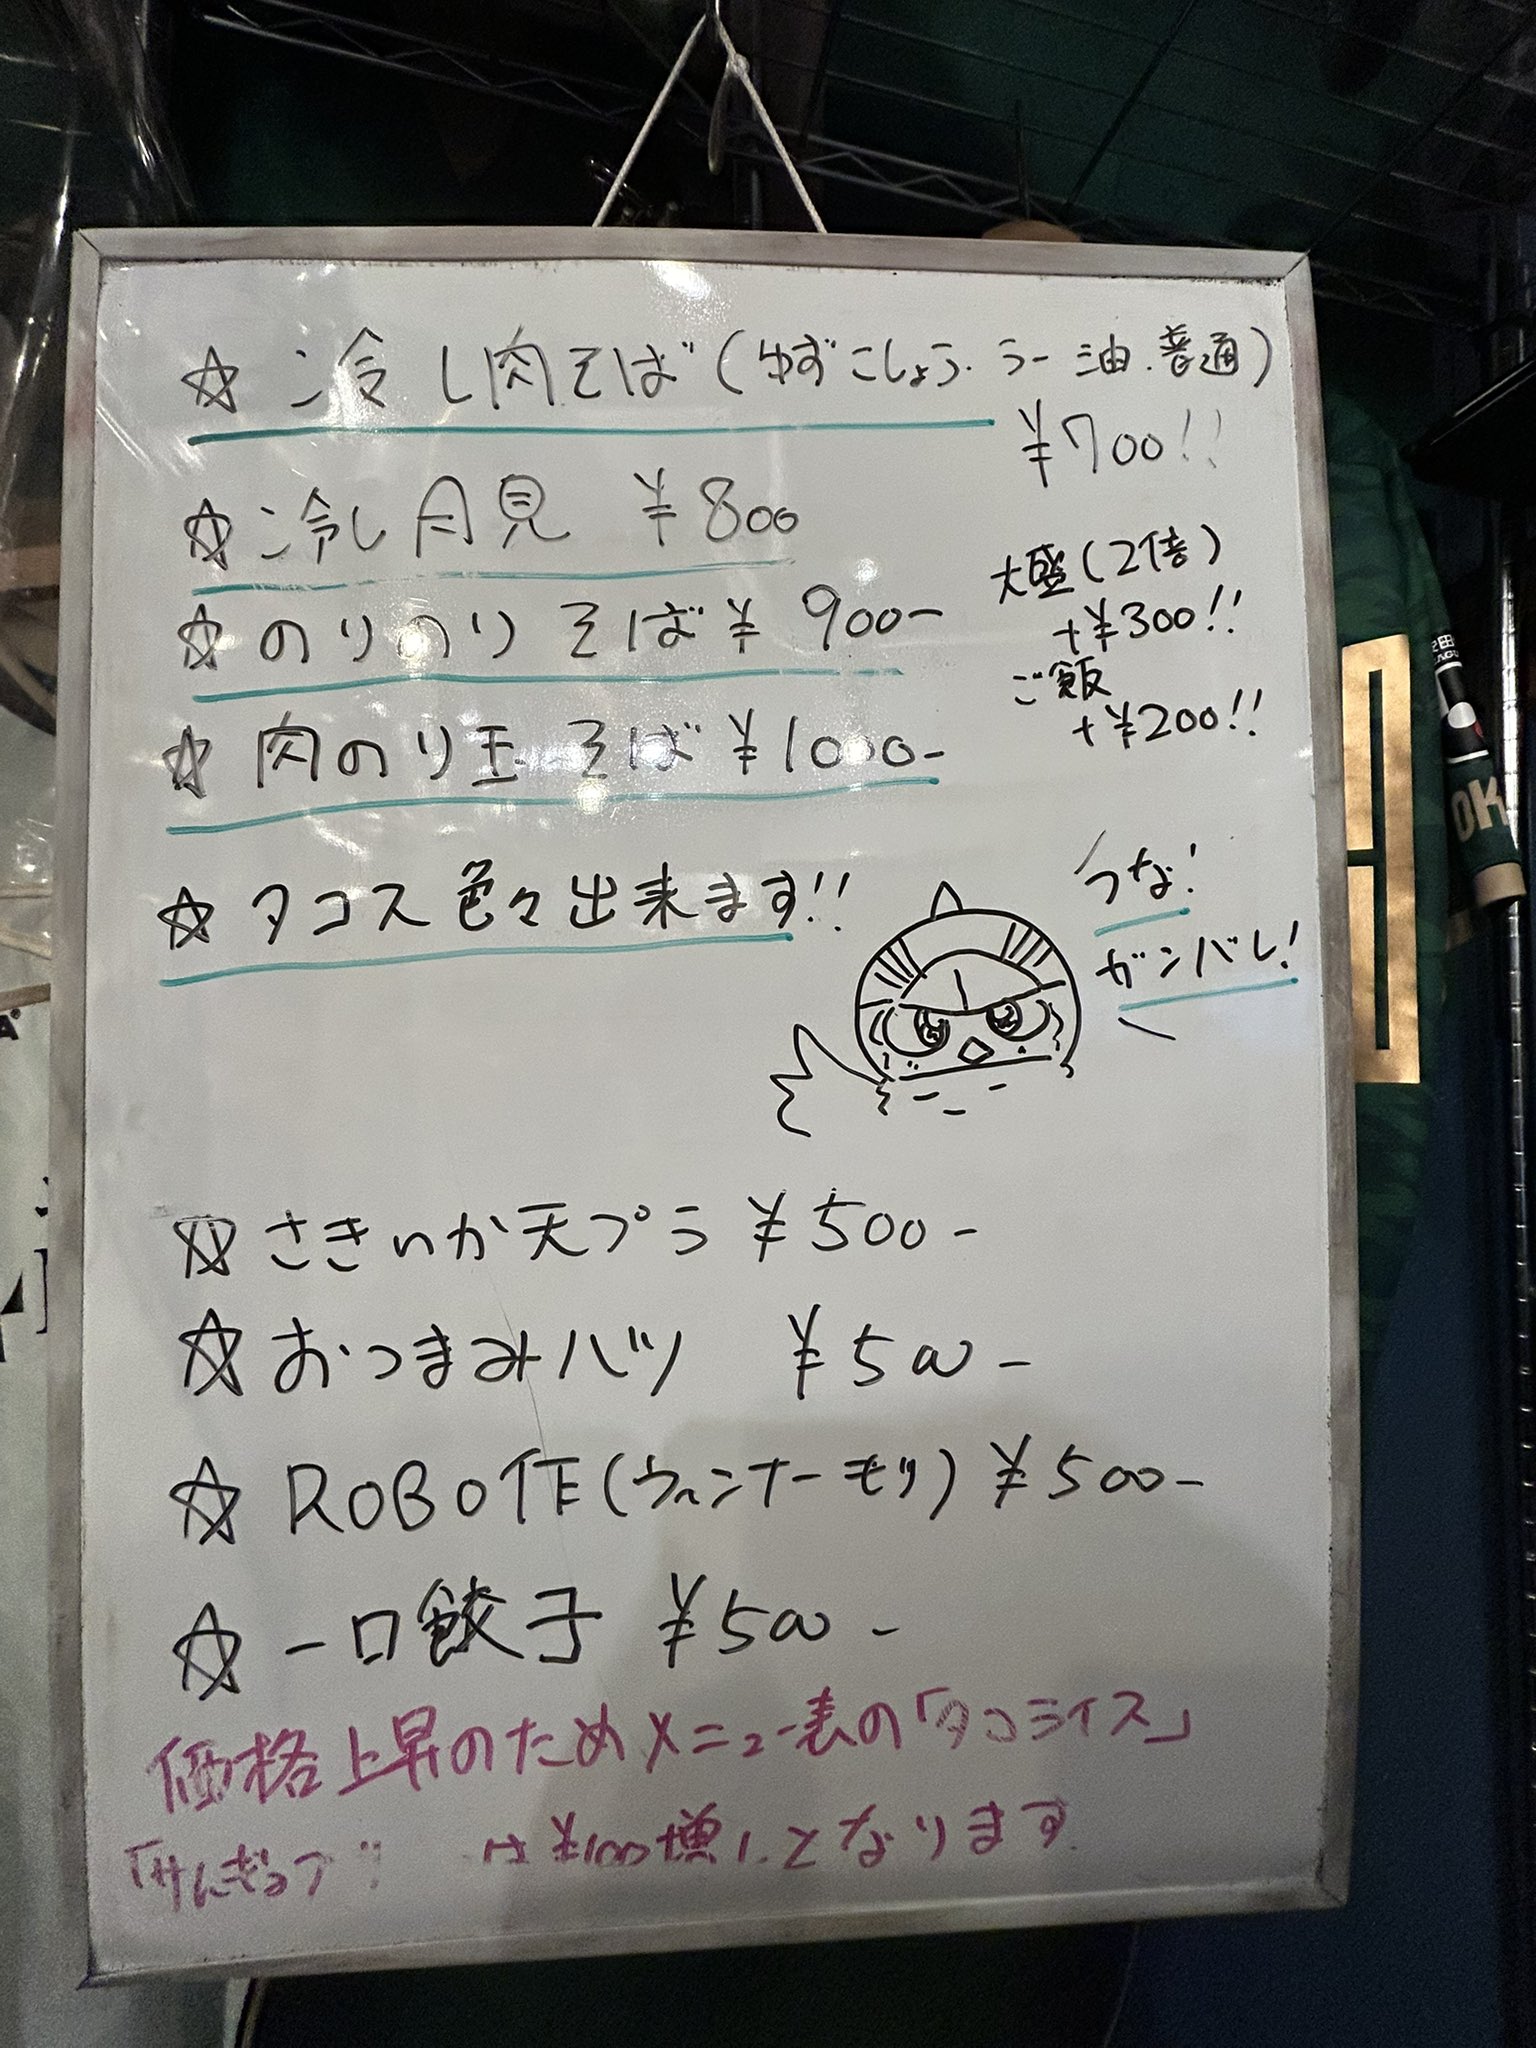 ☆冷し肉そば(ゆずこしょう.ラー油.普通)
¥700!!
☆冷し月見 ¥800
☆のりのりそば¥900-
☆肉のり玉そば¥1000-
大盛(2倍)
+¥300!!
ご飯
+¥200!!
☆タコス色々出来ます!!
うな!
ガンバレ!
☆さきいか天プラ¥500-
☆おつまみハツ ¥500-
☆ROBO作(ウィンナーモリ)¥500-
☆一口餃子 ¥500-
価格上昇のためメニュー表の「タコライス」
は¥100増しとなります
OK